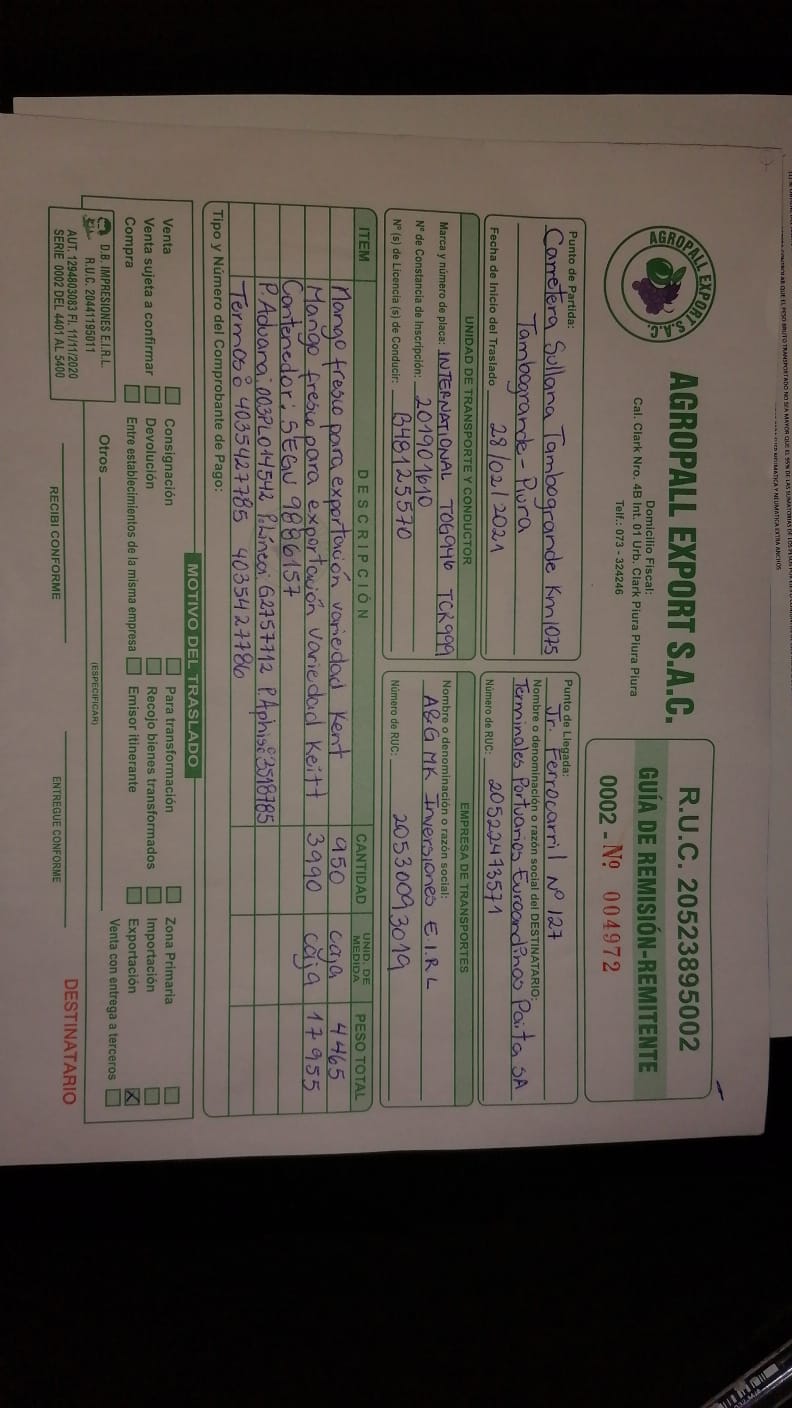 AGROPALL EXPORT S.A.C.
AGROPALL EXPORT S.A.C.
Domicilio Fiscal:
Cal. Clark Nro. 4B Int. 01 Urb. Clark Piura Piura Piura
Telf.: 073 - 324246
R.U.C. 20523895002
GUÍA DE REMISIÓN-REMITENTE
0002 - Nº 004972
Punto de Partida:
Carretera Sullana Tambogrande Km 1075
Tambogrande - Piura
Fecha de Inicio del Traslado 28/02/2021
Punto de Llegada:
Jr. Ferrocarril Nº 127
Nombre o denominación o razón social del DESTINATARIO:
Terminales Portuarios Euroandinos Paita SA
Número de RUC: 20522473571
UNIDAD DE TRANSPORTE Y CONDUCTOR
Marca y número de placa: INTERNATIONAL T0G946 TCK999
Nº de Constancia de Inscripción: 201901610
Nº (s) de Licencia (s) de Conducir: B48125570
EMPRESA DE TRANSPORTES
Nombre o denominación o razón social:
A&G MK Inversiones E.I.R.L
Número de RUC: 20530093019
ITEM DESCRIPCIÓN CANTIDAD UNID. DE MEDIDA PESO TOTAL
Mango fresco para exportación variedad Kent 950 caja 4465
Mango fresco para exportación Variedad Keitt 3990 caja 17955
Contenedor: SEGU 9886157
P.Aduana: 003PL014542 P.Línea: G2757712 P.Aphis: 3518785
Termos: 4035427785 4035427786
Tipo y Número del Comprobante de Pago:
MOTIVO DEL TRASLADO
Venta
Consignación
Para transformación
Zona Primaria
Venta sujeta a confirmar
Devolución
Recojo bienes transformados
Importación
Compra
Entre establecimientos de la misma empresa
Emisor itinerante
Exportación X
Venta con entrega a terceros
Otros
(ESPECIFICAR)
D.B. IMPRESIONES E.I.R.L.
R.U.C. 20441195011
AUT. 1294803083 FI. 11/11/2020
SERIE 0002 DEL 4401 AL 5400
RECIBI CONFORME
ENTREGUE CONFORME
DESTINATARIO